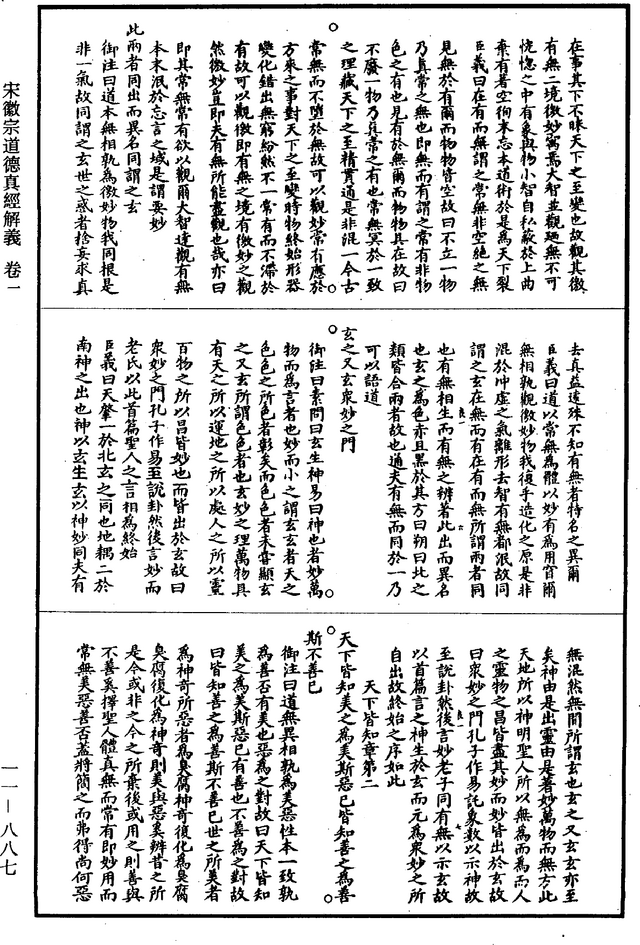 宋徽宗道德真經解義　卷一
在事其下不昧天下之至變也故觀其徼
有無二境徼妙寓焉大智並觀迺無不可
恍惚之中有象與物小智自私蔽於上曲
棄有著空徇末忘本道術於是為天下裂
臣義曰在有而無謂之常無非空絕之無
見無於有爾而物物皆空故曰不立一物
乃真常之無也即無而有謂之常有非物
色之有也見有於無爾而物物具在故曰
不廢一物乃真常之有也常無冥於一致
之理藏天下之至精貫通是非混一今古
常無而不墮於無故可以觀妙常有應於
方來之事對天下之至變時物終始形器
變化錯出無窮紛然不一常有而不滯於
有故可以觀徼即有無之境有徼妙之觀
然徼妙豈即夫有無所能盡觀也哉亦曰
即其常無常有欲以觀爾大智達觀有無
本末泯於忘言之域是謂要妙
此兩者同出而異名同謂之玄
御注曰道本無相孰為徼妙物我同根是
非一氣故同謂之玄世之惑者捨妄求真
去真益遠殊不知有無者特名之異爾
臣義曰道以常無為體以妙有為用窅爾
無相孰觀徼妙物我復乎造化之原是非
混於沖虛之氣離形去智有無都泯故同
謂之玄在無而有在有而無所謂兩者同
也有無相生而有無之辨著此出而異名
也玄之為色亦且黑於其方曰朔曰北之
類皆合兩者故也通夫有無而同於一乃
可以語道
玄之又玄衆妙之門
御注曰素問曰玄生神易曰神也者妙萬
物而為言者也妙而小之謂玄玄者天之
色色之所色者彰矣而色色者未嘗顯玄
之又玄所謂色色者也玄妙之理萬物具
有天之所以運地之所以處人之所以靈
百物之所以昌皆妙也而皆出於玄故曰
衆妙之門孔子作易至說卦然後言妙而
老氏以此首篇聖人之言相為終始
臣義曰天肇一於北玄之同也地耦二於
南神之出也神以玄生玄以神妙同夫有
無混然無間所謂玄也玄之又玄玄亦至
矣神由是出靈由是著妙萬物而無方此
天地所以神明聖人所以無為而為而人
之靈物之昌皆盡其妙而妙皆出於玄故
曰衆妙之門孔子作易託象數以示神故
至說卦然後言妙老子同有無以示玄故
以首篇言之神生於玄而元為衆妙之所
自出故終始之序如此
天下皆知章第二
天下皆知美之為美斯惡已皆知善之為善
斯不善已
御注曰道無異相孰為美惡性本一致孰
為善否有美也惡為之對故曰天下皆知
美之為美斯惡已有善也不善為之對故
曰皆知善之為善斯不善已世之所美者
為神奇所惡者為臭腐神奇復化為臭腐
臭腐復化為神奇則美與惡奚辨昔之所
是今或非之今之所棄後或用之則善與
不善奚擇聖人體真無而常有即妙用而
常無美惡善否蓋將簡之而弗得尚何惡
一一—八八七